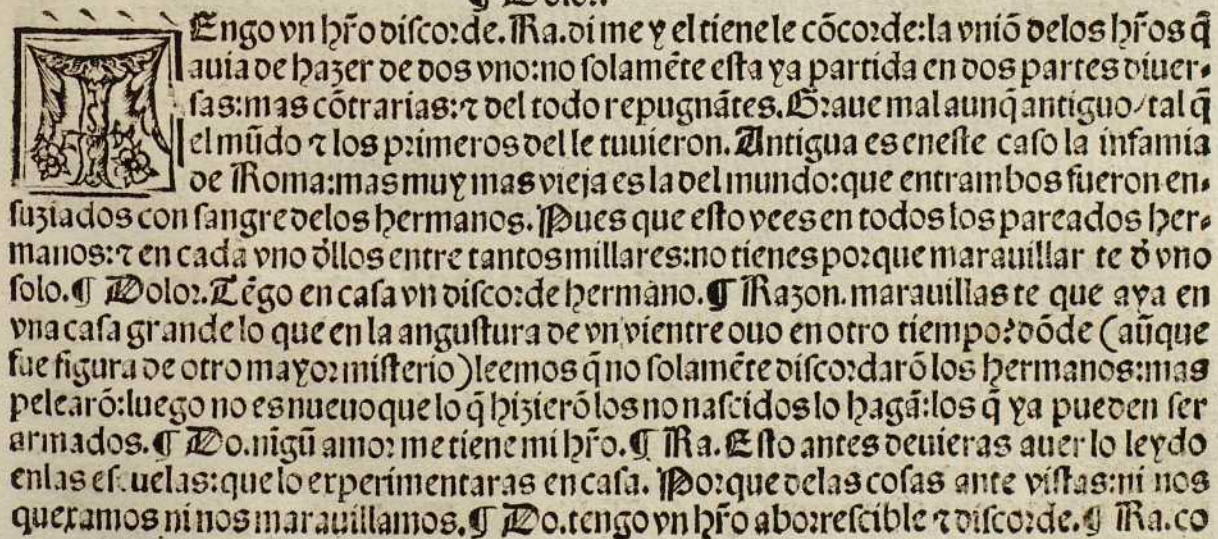 ¶ Dolor.
TEngo vn hr̃o discorde. Ra. di me y el tienele cõcorde: la vniõ delos hr̃os q̃
auia de hazer de dos vno: no solamẽte esta ya partida en dos partes diuer-
sas: mas cõtrarias: ⁊ del todo repugnãtes. Graue mal aunq̃ antiguo/ tal q̃
el mũdo ⁊ los primeros del le tuuieron. Antigua es eneste caso la infamia
de Roma: mas muy mas vieja es la del mundo: que entrambos fueron en-
suziados con sangre delos hermanos. Pues que esto vees en todos los pareados her-
manos: ⁊ en cada vno d̃llos entre tantos millares: no tienes porque marauillar te d̃ vno
solo. ¶ Dolor. Tẽgo en casa vn discorde hermano. ¶ Razon. marauillas te que aya en
vna casa grande lo que en la angustura de vn vientre ouo en otro tiempo? dõde (aũque
fue figura de otro mayor misterio) leemos q̃ no solamẽte discordarõ los hermanos: mas
pelearõ: luego no es nueuo que lo q̃ hizierõ los no nascidos lo hagã: los q̃ ya pueden ser
armados. ¶ Do. nĩgũ amor me tiene mi hr̃o. ¶ Ra. Esto antes deuieras auer lo leydo
enlas escuelas: que lo experimentaras en casa. Porque delas cosas ante vistas: ni nos
quexamos ni nos marauillamos. ¶ Do. tengo vn hr̃o aborrescible ⁊ discorde. ¶ Ra. co